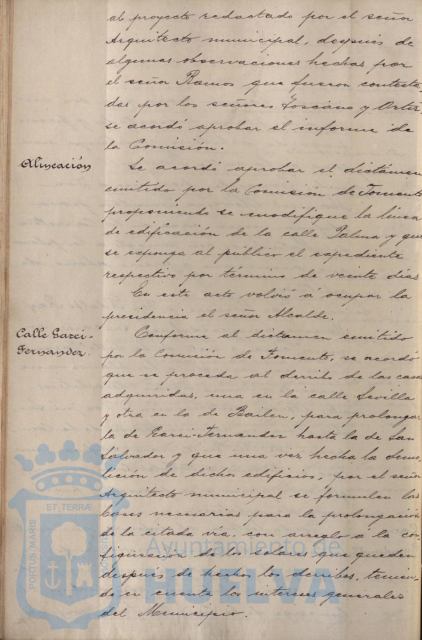 al proyecto redactado por el señor
Arquitecto municipal, después de
algunas observaciones hechas por
el señor Ramos que fueron contesta-
das por los señores Toscano y Ortiz,
se acordó aprobar el informe de
la Comisión.
Alineación
Se acordó aprobar el dictámen
emitido por la Comisión de Fomento
proponiendo se modifique la línea
de edificación de la calle Palma y que
se exponga al público el expediente
respectivo por término de veinte dias
En este acto volvió á ocupar la
presidencia el señor Alcalde.
Calle Garci-
Fernandez
Conforme al dictamen emitido
por la Comisión de Fomento, se acordó
que se proceda al derribo de las casas
adquiridas, una en la calle Sevilla
y otra en la de Bailen, para prolongar
la de Garci-Fernandez hasta la de San
Salvador y que una vez hecha la demo-
lición de dichos edificios, por el señor
Arquitecto municipal se formulen las
bases necesarias para la prolongación
de la citada vía, con arreglo a la con-
figuración de los solares que queden
después de hechos los derribos, tenien-
do en cuenta los intereses generales
del Municipio.
PORTUS MARIS
ET TERRAE
Ayuntamiento de
HUELVA